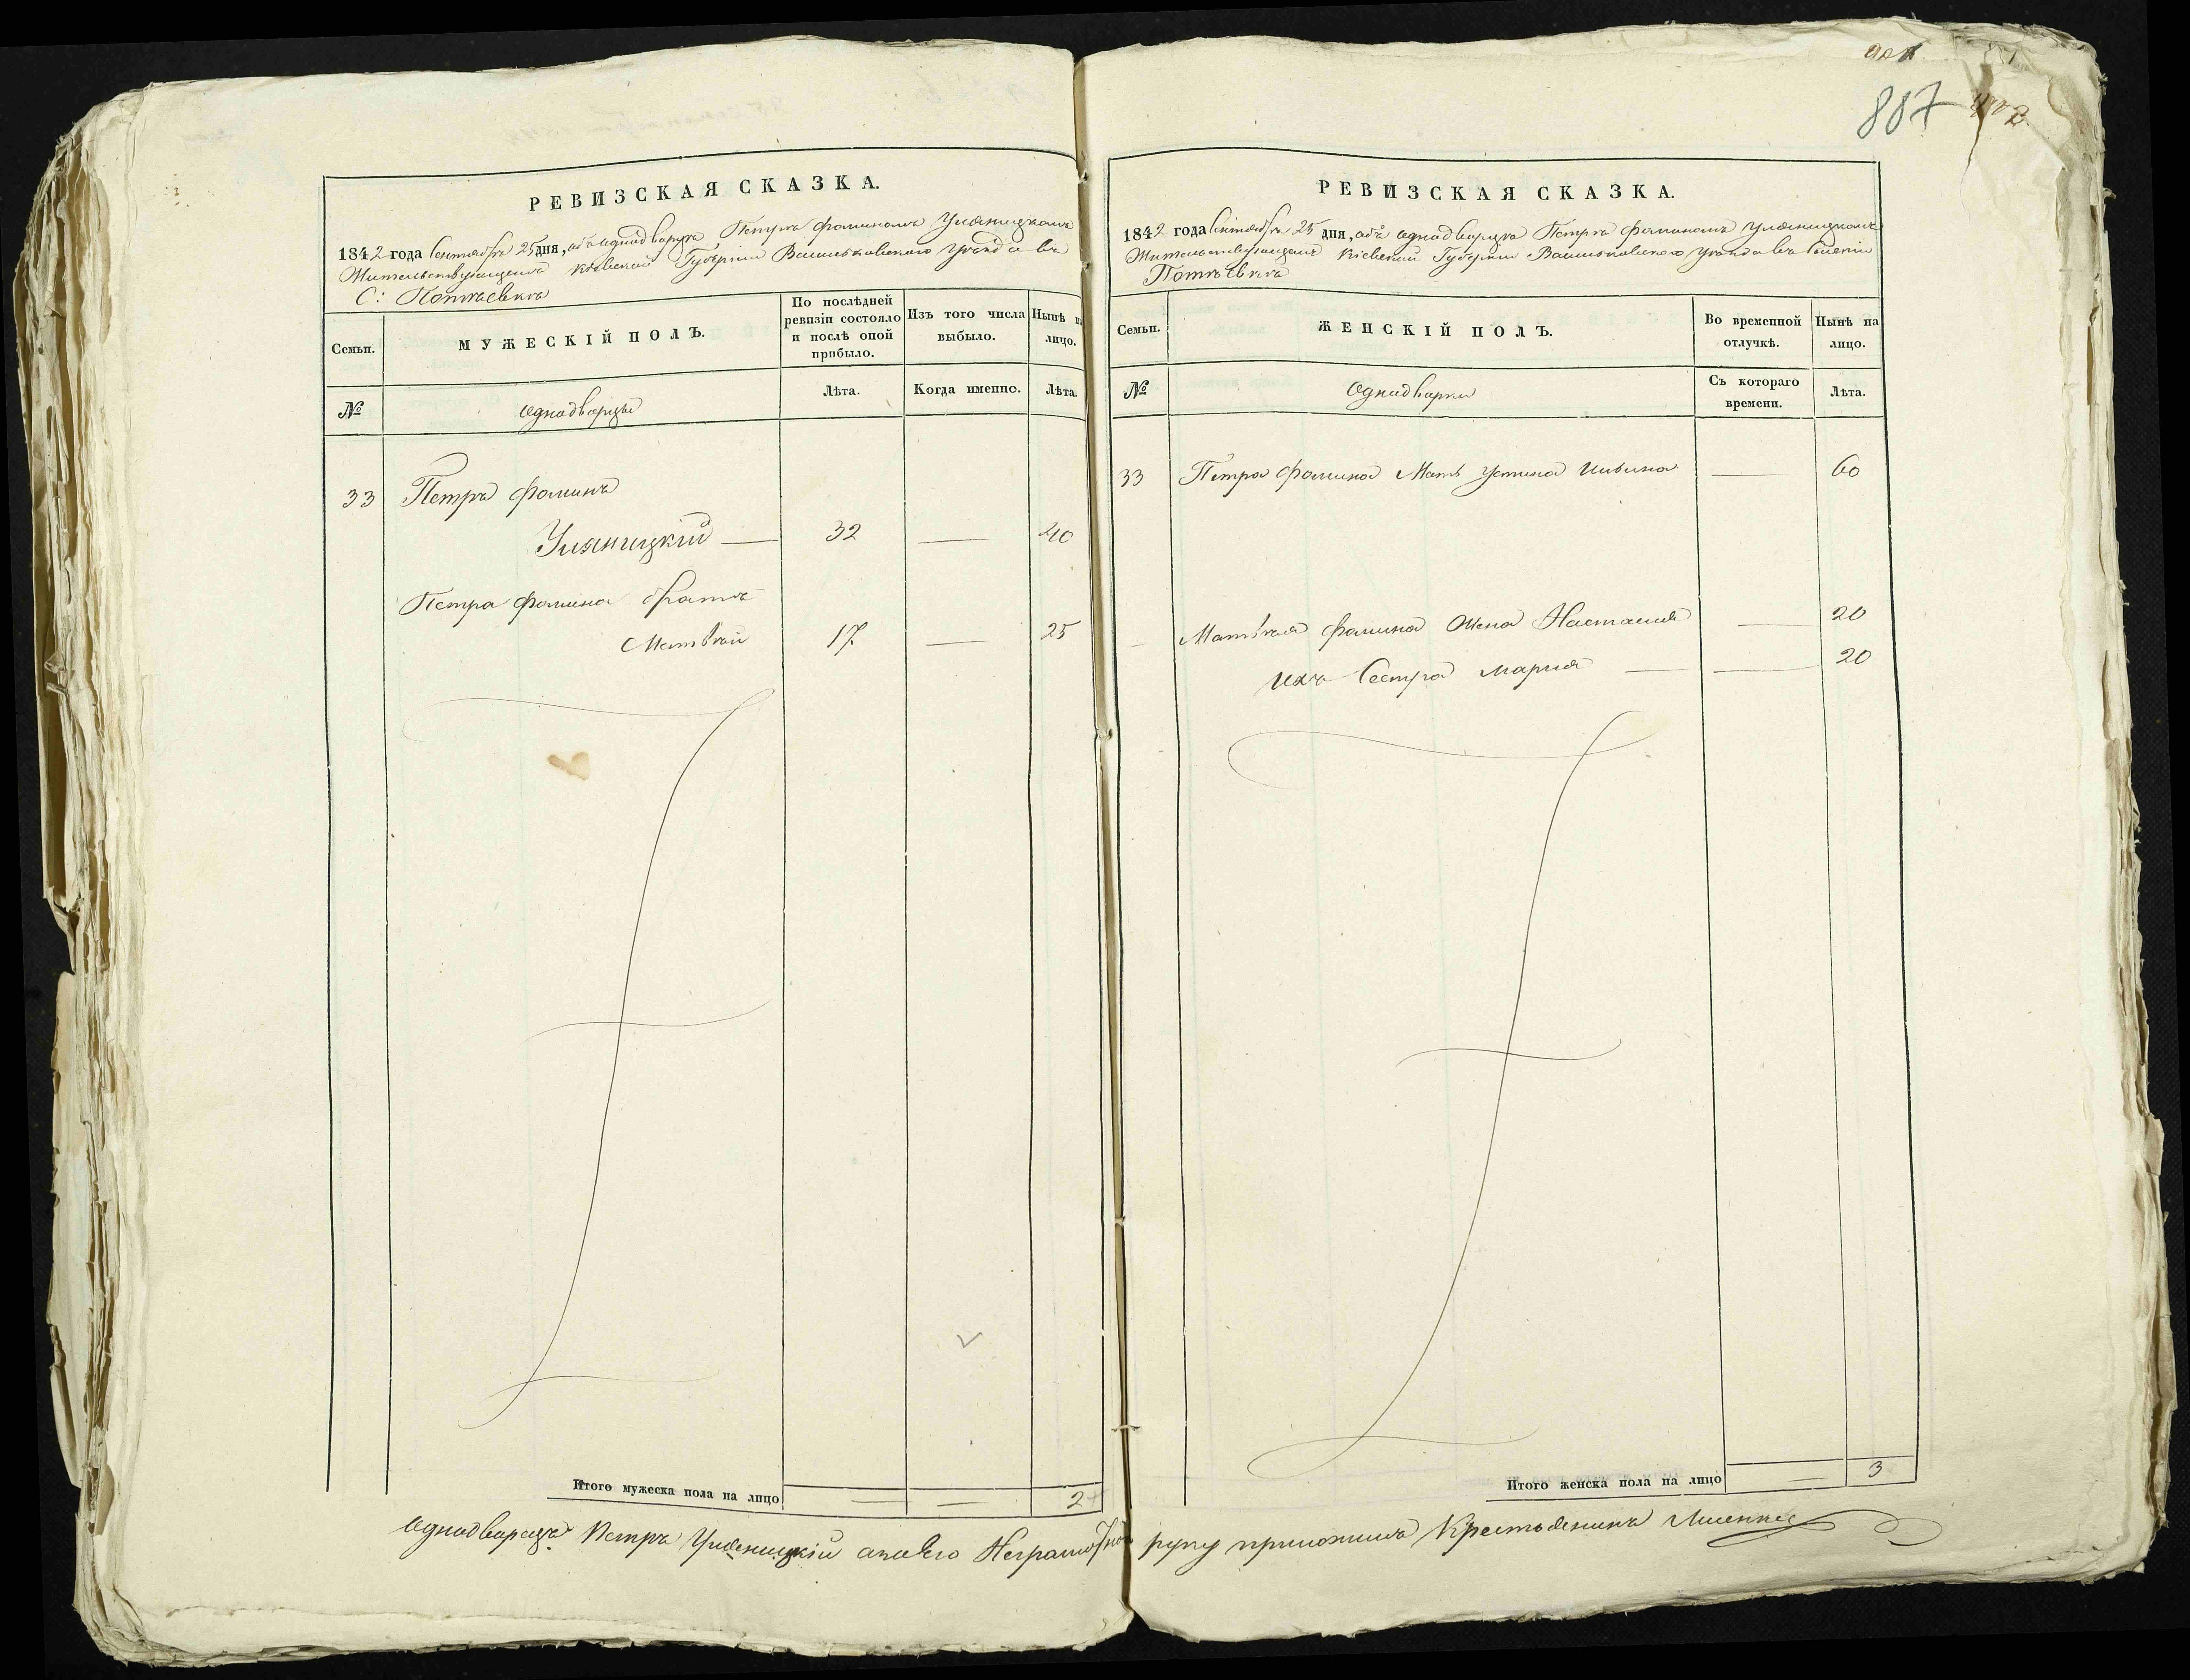 887
РЕВИЗСКАЯ СКАЗКА.
1842 года Сентября 25 дня, объ однодворцѣ Петрѣ Фоминомъ Уляницкомъ
Жительствующемъ Кіевской Губерніи Васильковскаго уѣзда въ
С: Потіевкѣ
Семьи.
МУЖЕСКІЙ ПОЛЪ.
По послѣдней ревизіи состояло и послѣ оной прибыло.
Изъ того числа выбыло.
Нынѣ на лицо.
№
Однодворцы
Лѣта.
Когда именно.
Лѣта.
33 Петръ Фоминъ
Уляницкій — 32 — 40
Петра Фомина братъ
Матвѣй 17 — 25
Итого мужеска пола на лицо = = 2
РЕВИЗСКАЯ СКАЗКА.
1842 года Сентября 25 дня, объ однодворцѣ Петрѣ Фоминомъ Уляницкомъ
Жительствующемъ Кіевской Губерніи Васильковскаго уѣзда въ Селеніи
Потіевкѣ
Семьи.
ЖЕНСКІЙ ПОЛЪ.
Во временной отлучкѣ.
Нынѣ на лицо.
№
Однодворки
Съ котораго времени.
Лѣта.
33 Петра Фомина Мать Устина — 60
Матвѣя Фомина Жена Настасия — 20
ихъ Сестра Мария — — 20
Итого женска пола на лицо = 3
Однодворецъ Петръ Уляницкій Неграмотн руку приложилъ Крестьянинъ